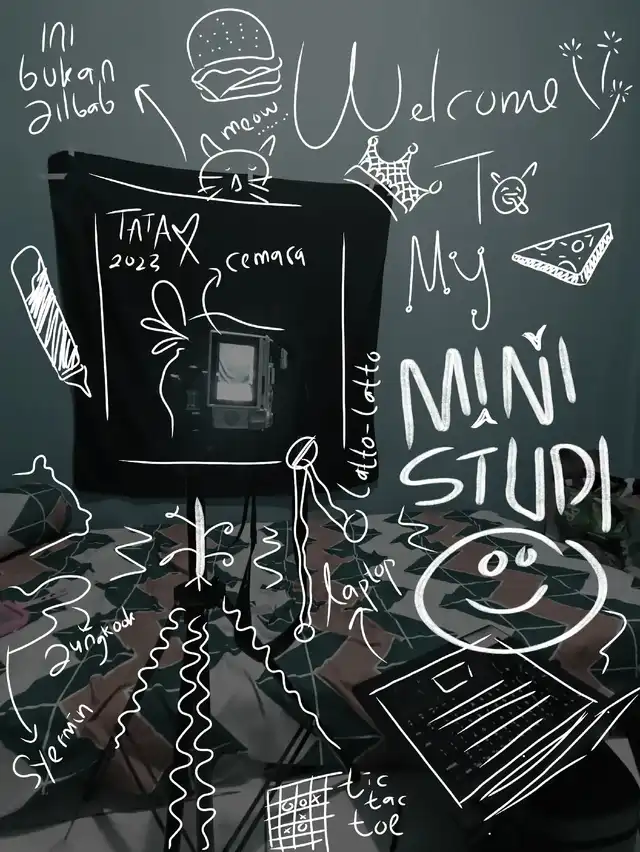 ini
bukan
Jilbab
meow
Welcome
To
My
TATA
2023
cemara
MINI
STUDI
Latto-Latto
Laptop
Jungkook
Stermin
tic
tac
toe